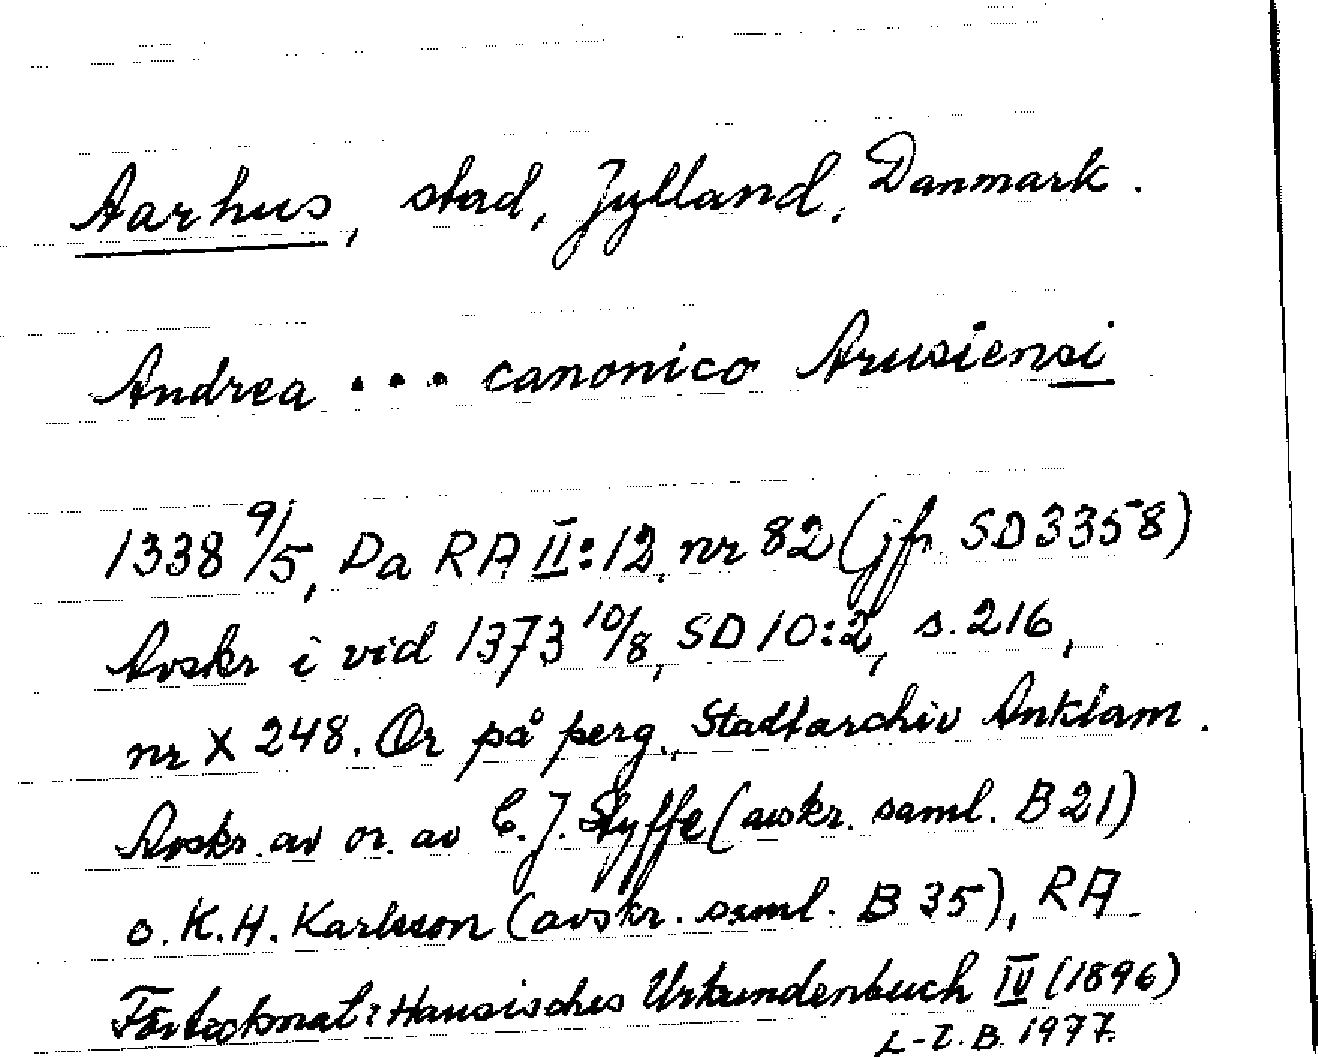 Aarhus, stad, Jylland, Danmark.
Andrea ... canonico Arusiensi
1338 9/5, Da RA II:12, nr 82 (jfr SD 3358)
Avskr i vid 1373 10/8, SD 10:2, s. 216,
nr X 248. Or på perg., Stadtarchiv Anklam.
Avskr. av or. av C. J. Styffe (avskr. saml. B 21)
o. K. H. Karlsson (avskr. saml. B 35), RA.
Förtecknat: Hansisches Urkundenbuch IV (1896)
L-I. B. 1977.